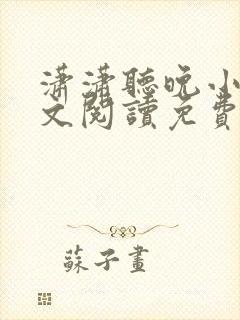 瀟瀟聽晚小
文閱讀免費
蘇子畫